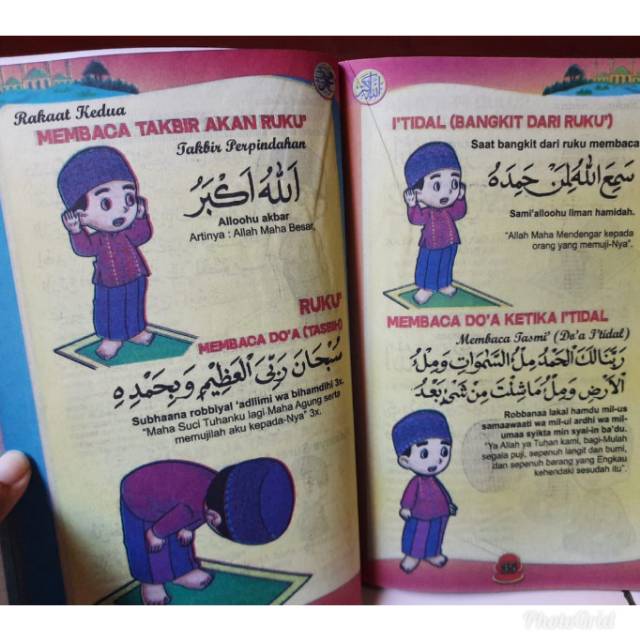 Rakaat Kedua
MEMBACA TAKBIR AKAN RUKU'
Takbir Perpindahan
اَللهُ اَكْبَرُ
Alloohu akbar
Artinya : Allah Maha Besar,
RUKU'
MEMBACA DO'A (TASBIH)
سُبْحَانَ رَبِّيَ الْعَظِيْمِ وَبِحَمْدِهِ
Subhaana robbiyal 'adliimi wa bihamdihi 3x.
"Maha Suci Tuhanku lagi Maha Agung serta
memujilah aku kepada-Nya" 3x.
I'TIDAL (BANGKIT DARI RUKU')
Saat bangkit dari ruku membaca
سَمِعَ اللهُ لِمَنْ حَمِدَهُ
Sami'alloohu liman hamidah.
"Allah Maha Mendengar kepada
orang yang memuji-Nya".
MEMBACA DO'A KETIKA I'TIDAL
Membaca Tasmi' (Do'a I'tidal)
رَبَّنَا لَكَ الْحَمْدُ مِلْءُ السَّمٰوَاتِ وَمِلْءُ
الْاَرْضِ وَمِلْءُ مَاشِئْتَ مِنْ شَيْءٍ بَعْدُ
Robbanaa lakal hamdu mil-us
samaawaati wa mil-ul ardhi wa mil-
umaa syikta min syai-in ba'du.
"Ya Allah ya Tuhan kami, bagi-Mulah
segala puji, sepenuh langit dan bumi,
dan sepenuh barang yang Engkau
kehendaki sesudah itu".
PhotoGrid